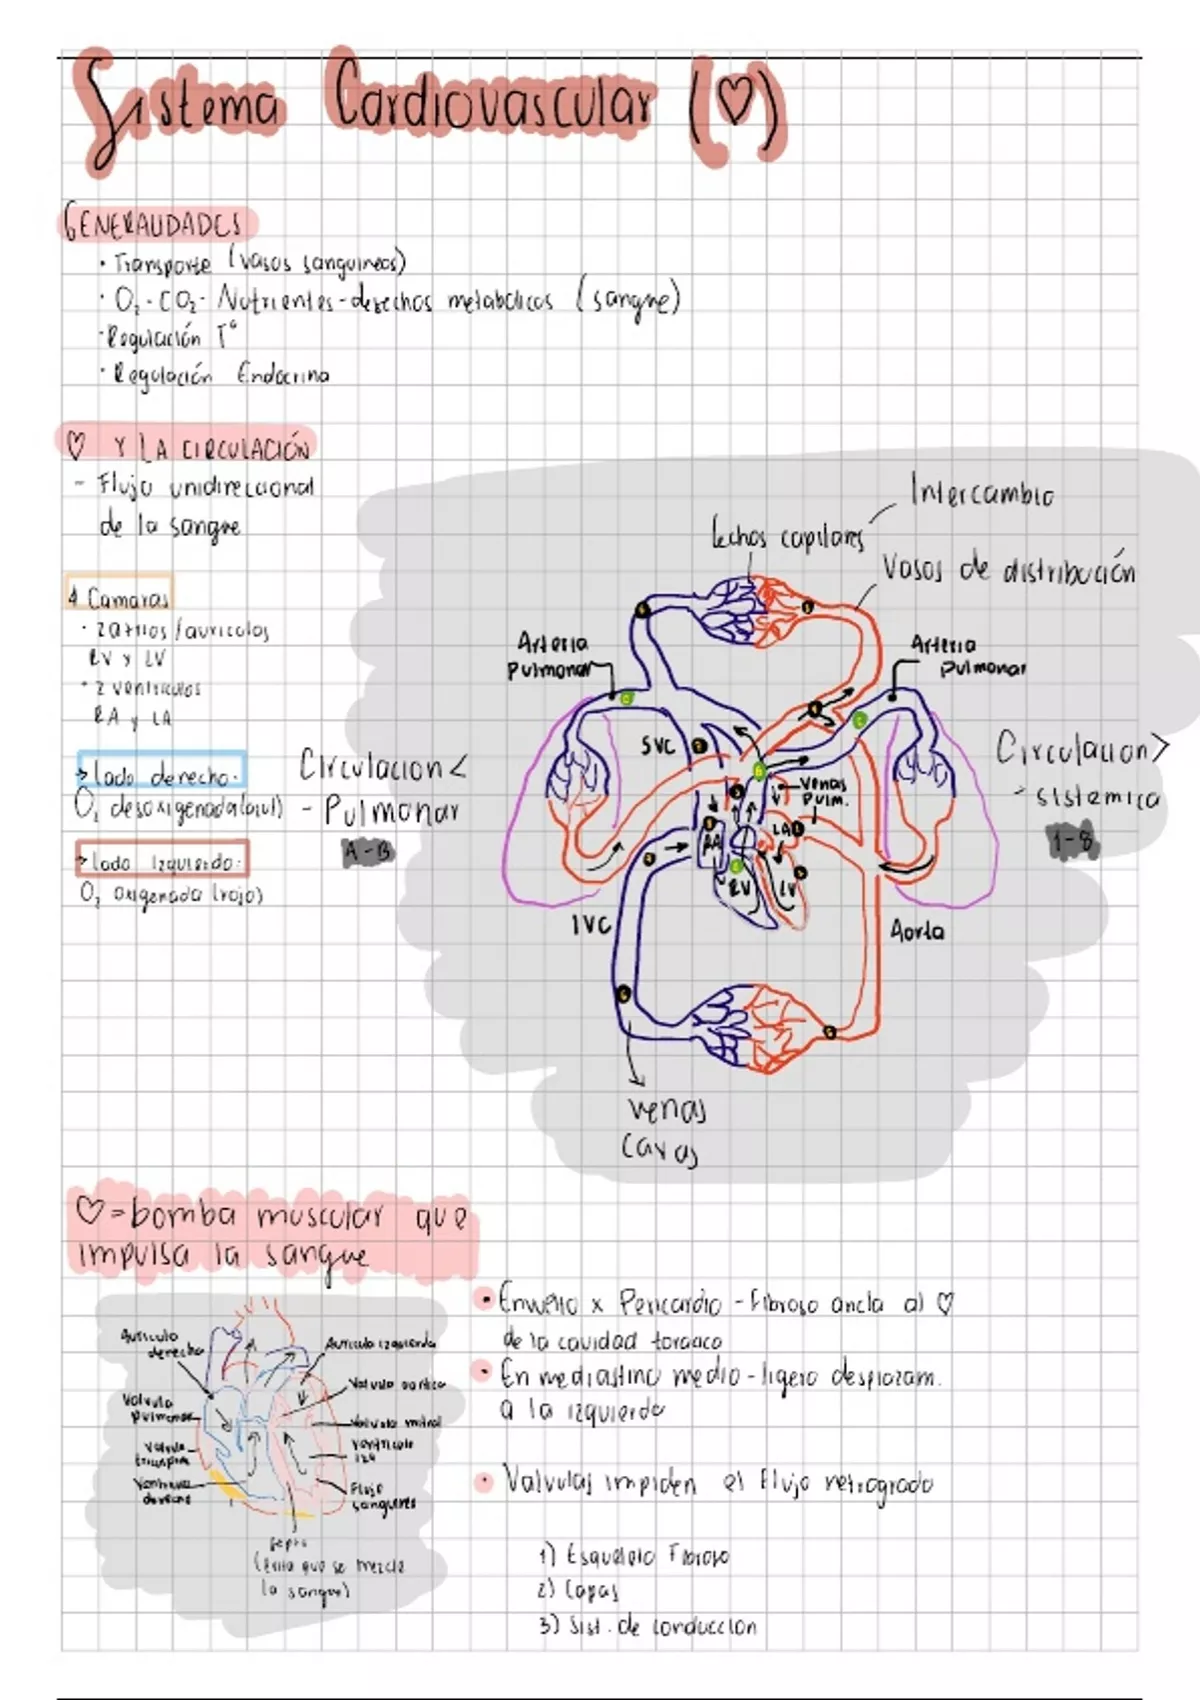 Sistema Cardiovascular (♡)
GENERALIDADES
• Transporte (vasos sanguineos)
• O₂-CO₂- Nutrientes-desechos metabolicos (sangre)
• Regulación T°
• Regulación Endocrina
♡ Y LA CIRCULACIÓN
- Flujo unidireccional
de la sangre
4 Camaras
• 2 atrios/auriculas
RV y LV
• 2 ventriculos
RA y LA
→ lado derecho:
O₂ desoxigenada (azul)
→ lado izquierdo:
O₂ oxigenada (rojo)
Circulacion <
- Pulmonar
A-B
Intercambio
lechos capilares
Vasos de distribución
Arteria
pulmonar
Arteria
pulmonar
SVC
Venas
pulm.
LA
RA
RV
LV
IVC
Aorta
Circulacion >
- sistemica
1-8
venas
cavas
♡=bomba muscular que
impulsa la sangre
Auricula
derecha
Auricula izquierda
Valvula aortica
Valvula
pulmonar
Valvula mitral
Valvula
Ventriculo
izq
Flujo
sanguineo
septo
(evita que se mezcle
la sangre)
• Envuelto x Pericardio - Fibroso ancla al ♡
de la cavidad toracica
• En mediastino medio - ligero desplazam.
a la izquierda
• Valvulas impiden el flujo retrogrado
1) Esqueleto Fibroso
2) Capas
3) Sist. de conduccion